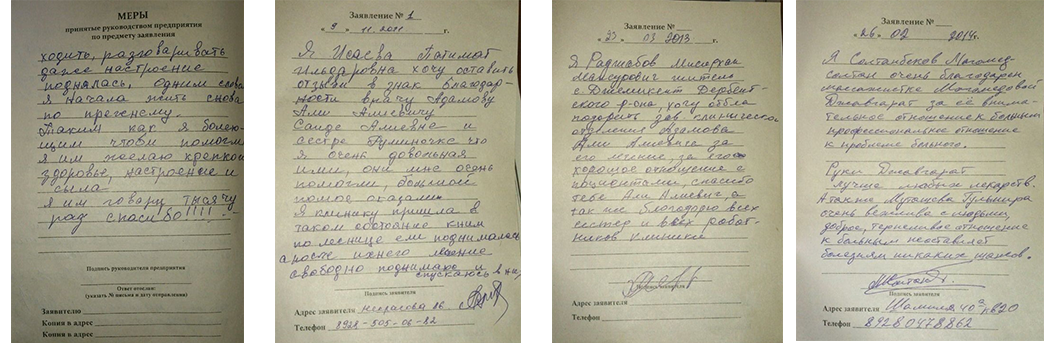 МЕРЫ
принятые руководством предприятия
по предмету заявления
ходить, разговаривать
даже настроение
поднялась, Одним слова
я начала жить снова
по прежнему.
Таким как я болею-
щим чтоби помогли
я им желаю крепкой
здоровье, настроение и
сыла
я им говару тысячу
раз спасибо!!!!
Подпись руководителя предприятия
Ответ отослан:
(указать № письма и дату отправления)
Заявителю
Копия в адрес
Копия в адрес
Заявление № 1
« 9 » 11. 2011 г.
Я Исаева Патимат
Ильдаровна хочу оставить
отзыв в знак благодар-
ности врачу Адамову
Али Алиевичу
Саиде Алиевне и
сестре Гулиночке что
я очень довольная
ими, они мне очень
помогли, большой
помое оказали
Я клинику пришла в
таком состояние к ним
по леснице еле поднималась
а после ихнего лечение
свободно поднимаюс и
спускаюсь в низ
Подпись заявителя
Адрес заявителя Некрасова 86
Телефон 8928-505-06-82
Заявление №
« 23 » 03 2013 г.
Я Раджабов Мисирхан
жителя
с. Джемикент Дербент-
ского р-она, хочу отбла
годарить зав клинически
отделения Адамова
Али Алиевича за
его лечение, за его
хорошое отношение с
пациентами, спасибо
тебе Али Алиевич, а
так же благодарю всех
сестер и всех работ-
ников клиники
Подпись заявителя
Адрес заявителя
Телефон
Заявление №
« 26 » 02 2014 г.
Я Солтанбеков Магомед
солтан очень благодарен
массажистке Магомедовой
Джавгарат за её внима-
тельное отношение к больным
профессиональное отношение
к проблеме больного.
Руки Джавгарат
лучше любых лекарств.
А также Гульнира
очень вежлива с людьми,
добрая, терпеливое отношение
к больным неоставляет
болезням никаких шансов.
Подпись заявителя
Адрес заявителя Шамиля 40
Телефон 89280478862